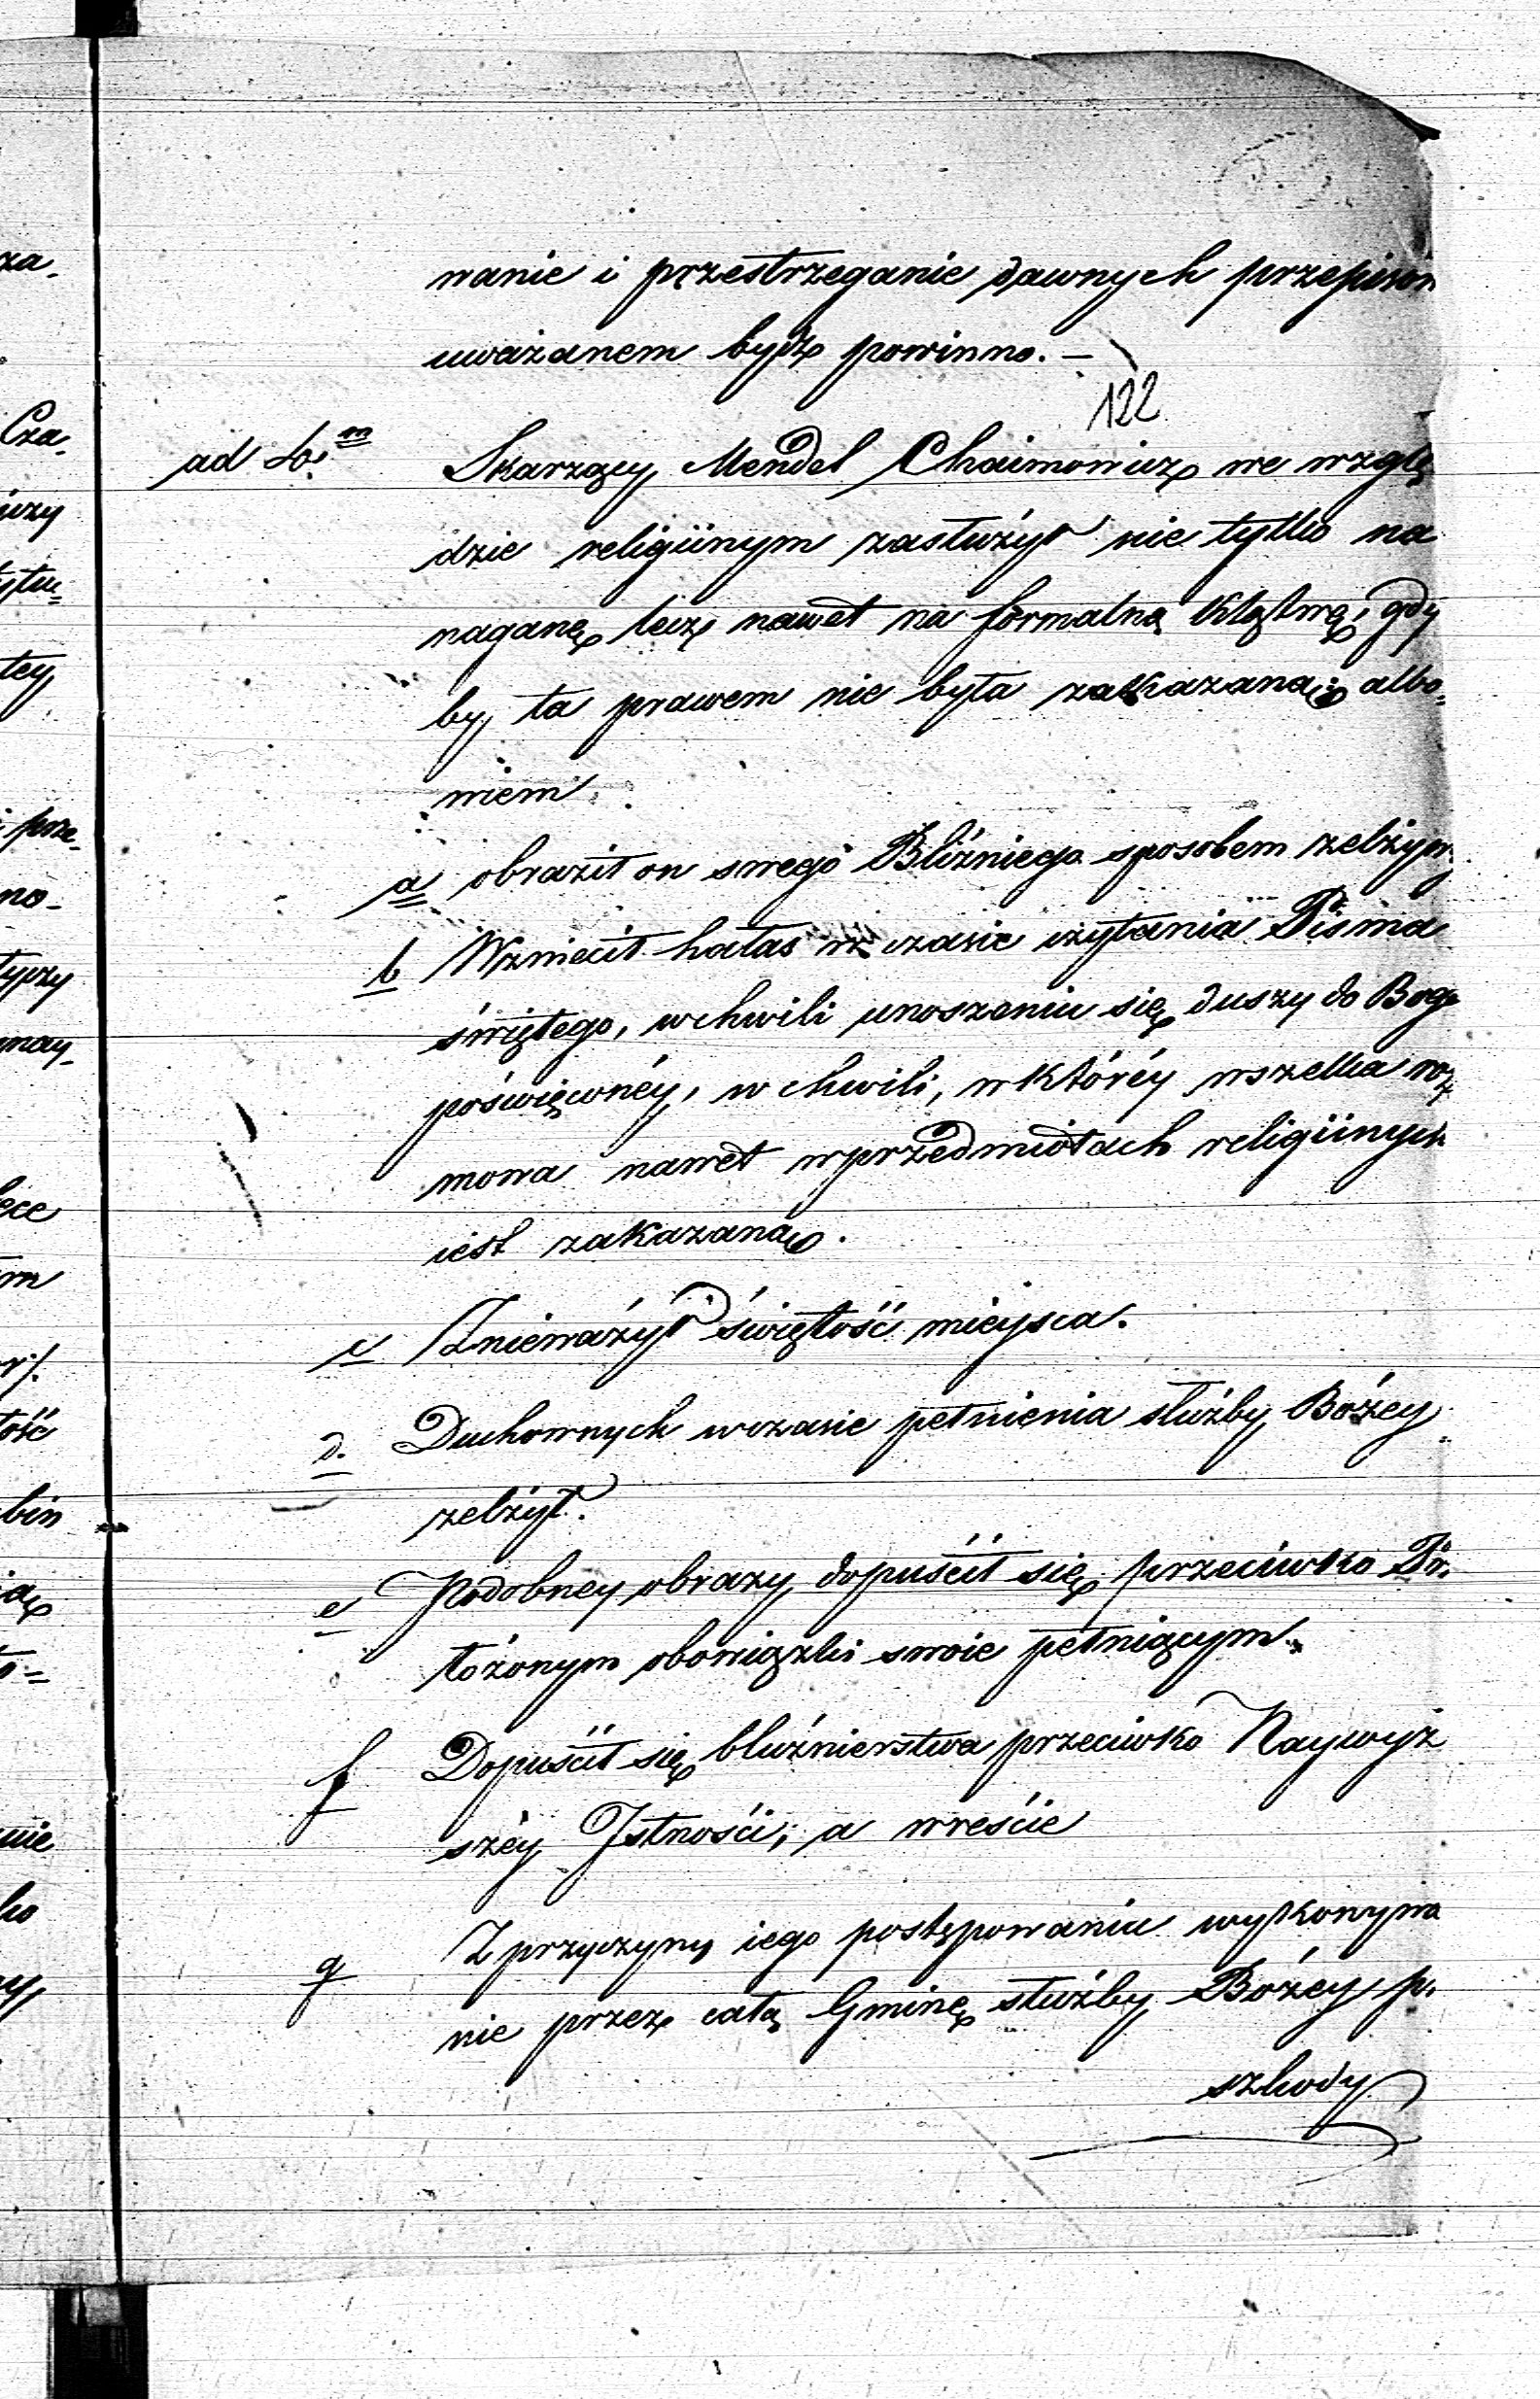 wanie i przestrzeganie dawnych przepisów
uważanem bydź powinno. —
122
ad b.m Skarzący Mendel Chaimowicz we wzglę
dzie religiinym zasłużył nie tylko na
naganę lecz nawet na formalną klątwę, gdy
by ta prawem nie była zakazaną; albo=
wiem
a obraził on swego Bliźniego sposobem zelżywy
b Wzniecił hałas w czasie czytania Pisma
świętego, w chwili unoszeniu się duszy do Boga
poświęconéy, w chwili, w któréy wszelka roz
mowa nawet w przedmiotach religiinych
iest zakazaną.
c Znieważył świętość mieysca.
d. Duchownych w czasie pełnienia służby Bożey
zelżył.
e Podobney obrazy dopuścił się przeciwko Prze
łożonym obowiązki swoie pełniącym.
f Dopuścił się bluźnierstwa przeciwko Naywyż
széy Istności; a wreście
g Z przyczyny iego postępowania wykonywa
nie przez całą Gminę służby Bożey prze
szkody
za.
Cza.
tey
prze.
no.
may.
ece
m
ość
bin
nie
ko